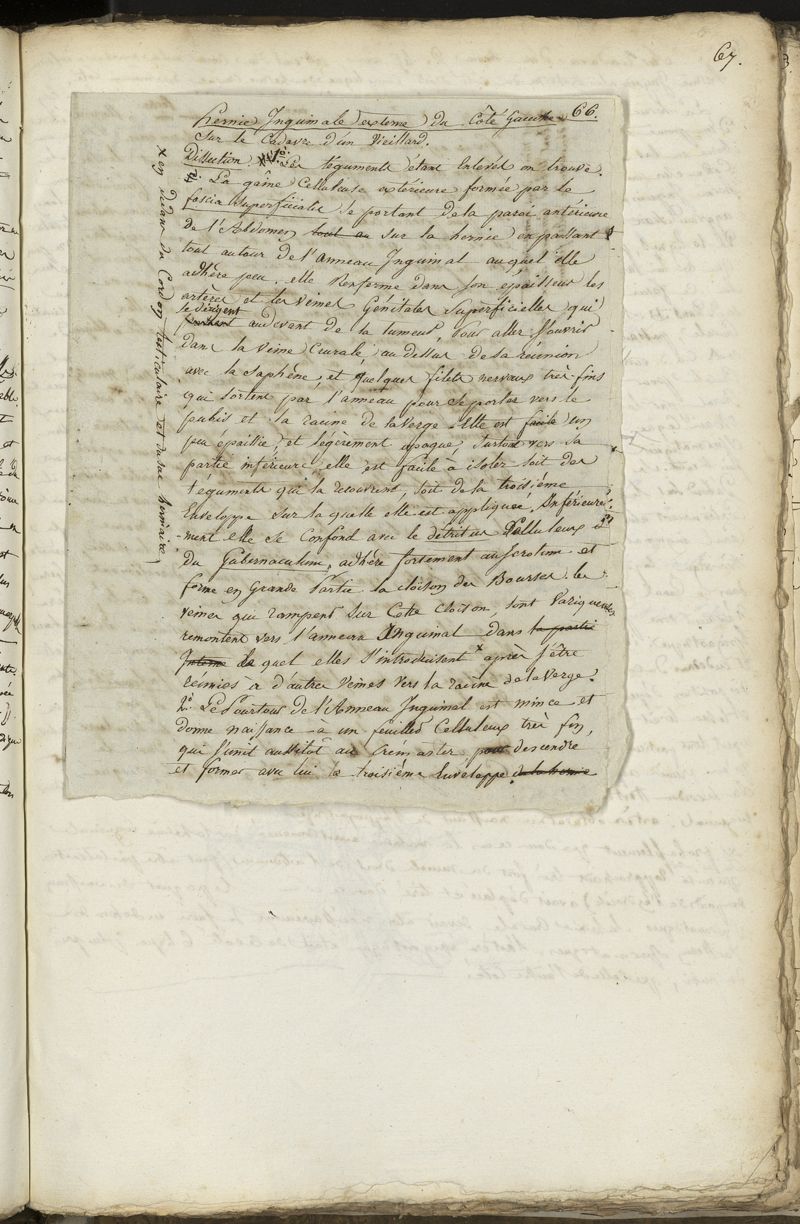 67.
66.
hernie Inguinale externe du Côté Gauche
Sur le Cadavre d'un Vieillard.
Dissection Les téguments étant Enlevés on trouve.
La gaine Celluleuse extérieure formée par le
fascia Superficialis se portant de la paroi antérieure
De l'Abdomen tout au sur la hernie en passant
tout autour de l'anneau Inguinal auquel elle
adhère peu. elle Renferme dans son épaisseur les
artères et les veines Génitales Superficielles qui
se dirigent
au devant de la tumeur, pour aller s'ouvrir
dans la Veine Crurale, au dessus de sa réunion
avec la Saphène, et quelques filets nerveux très fins
qui sortent par l'anneau pour se porter vers le
pubis et la racine de la verge. Elle est facile un
peu épaissie, et légèrement opaque, surtout vers sa
partie inférieure elle est facile à isoler soit des
téguments qui la recouvrent, soit de la troisième
Enveloppe sur la quelle elle est appliquée, Inférieure-
-ment elle se Confond avec le détritus Celluleux
du Gubernaculum, adhère fortement au scrotum et
forme en Grande Partie la cloison des Bourses. les
veines qui rampent sur Cette cloison, sont Variqueuses
remontent vers l'anneau Inguinal dans la partie
Interne le quel elles s'introduisent x après s'être
réunies à d'autres veines vers la racine de la verge.
2.º Le Pourtour de l'Anneau Inguinal est mince et
donne naissance à un feuillet Celluleux très fin,
qui s'unit aussitôt au Cremaster pour descendre
et former avec lui la troisième Enveloppe de la hernie
x en dedans du Cordon testiculaire et du sac herniaire